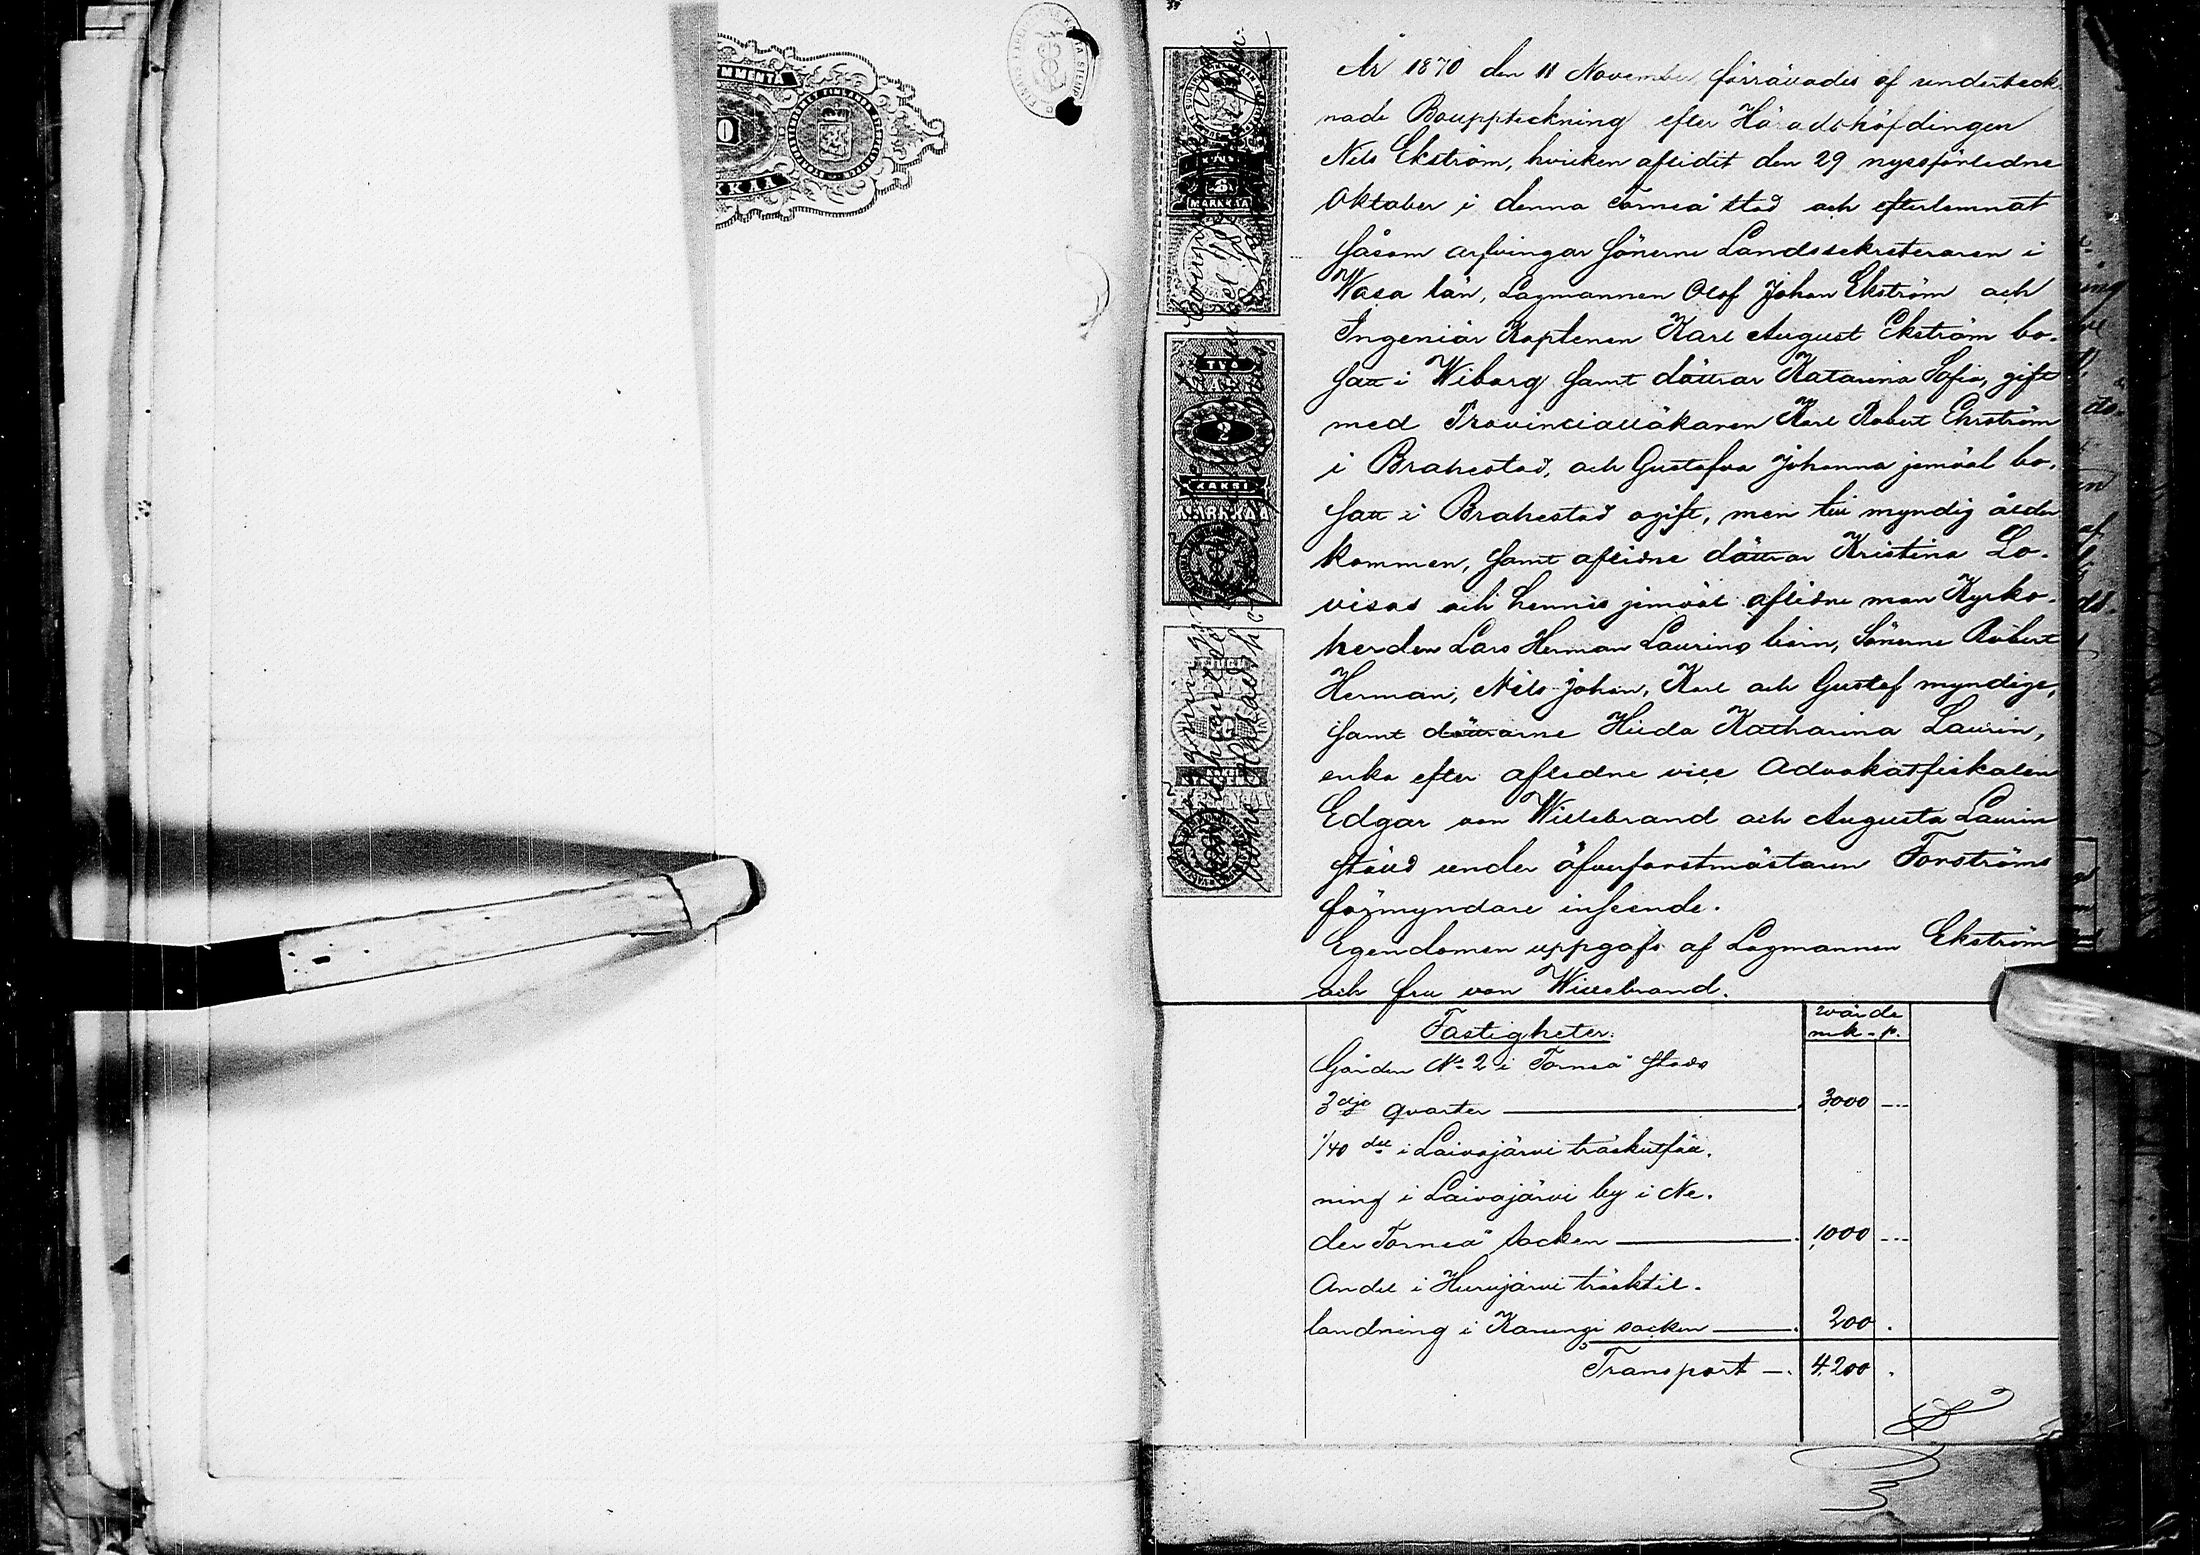 År 1870 den 11 November förrättades af underteck-
nade Bouppteckning efter Häradshöfdingen
Nils Ekström, hvilken aflidit den 29 nyssförledne
Oktober i denna Torneå stad och efterlemnat
såsom arfvingar sönerne Landssekreteraren i
Wasa län, Lagmannen Olof Johan Ekström och
Ingeniör Kaptenen Karl August Ekström bo-
satt i Wiborg samt döttrar Katarina Sofia, gift
med Provincialläkaren Karl Robert Ehrström
i Brahestad, och Gustafva Johanna jemväl bo-
satt i Brahestad ogift, men till myndig ålder
kommen, samt aflidne döttrar Kristina Lo-
visas och hennes jemväl aflidne man Kyrko-
herden Lars Herman Laurins barn, Sönerne Robert
Herman, Nils Johan, Karl och Gustaf myndige,
samt döttrarne Hilda Katharina Laurin,
enka efter aflidne vice Advokatfiskalen
Edgar von Willebrand och Augusta Laurin
ställd under öfverforstmästaren Forströms
förmyndare inseende.
Egendomen uppgafs af Lagmannen Ekström
och fru von Willebrand.
Fastigheter.
värde
mk - p.
Gården No 2 i Torneå stads
3dje qvarter 3000 ---
1/40 del i Laivajärvi träskutfäll-
ning i Laivajärvi by i Ne-
der Torneå socken 1000 ---
Andel i Hurujärvi träsktil-
landning i Karungi socken 200 .
Transport —. 4,200 .
KAKSI
MARKKAA
2
MARKKAA